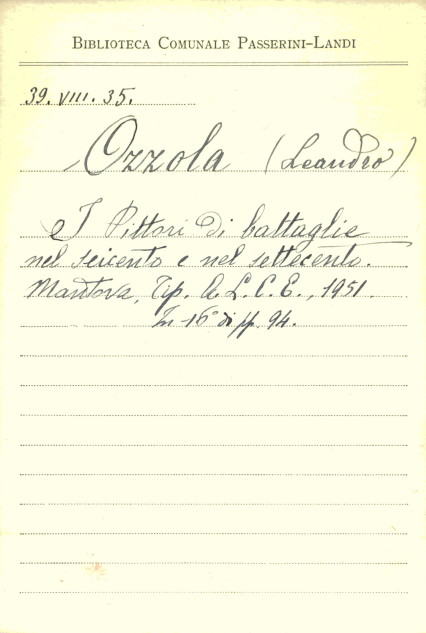 BIBLIOTECA COMUNALE PASSERINI-LANDI
39. VIII. 35.
Ozzola (Leandro)
I Pittori di battaglie
nel seicento e nel settecento.
Mantova, Tip. A. L. C. E., 1951.
In-16° di pp. 94.